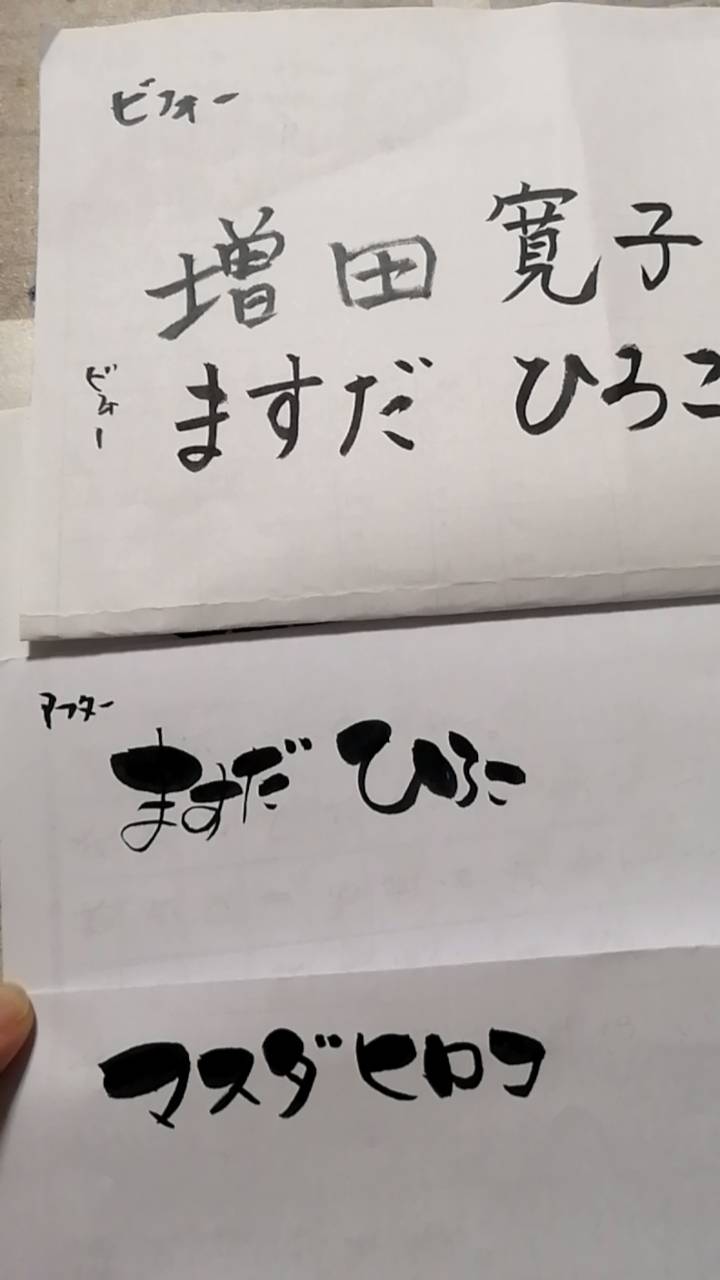 ビフォー
増田 寛子
ビフォー
ますだ ひろこ
アフター
ますだ ひろこ
マスダヒロコ